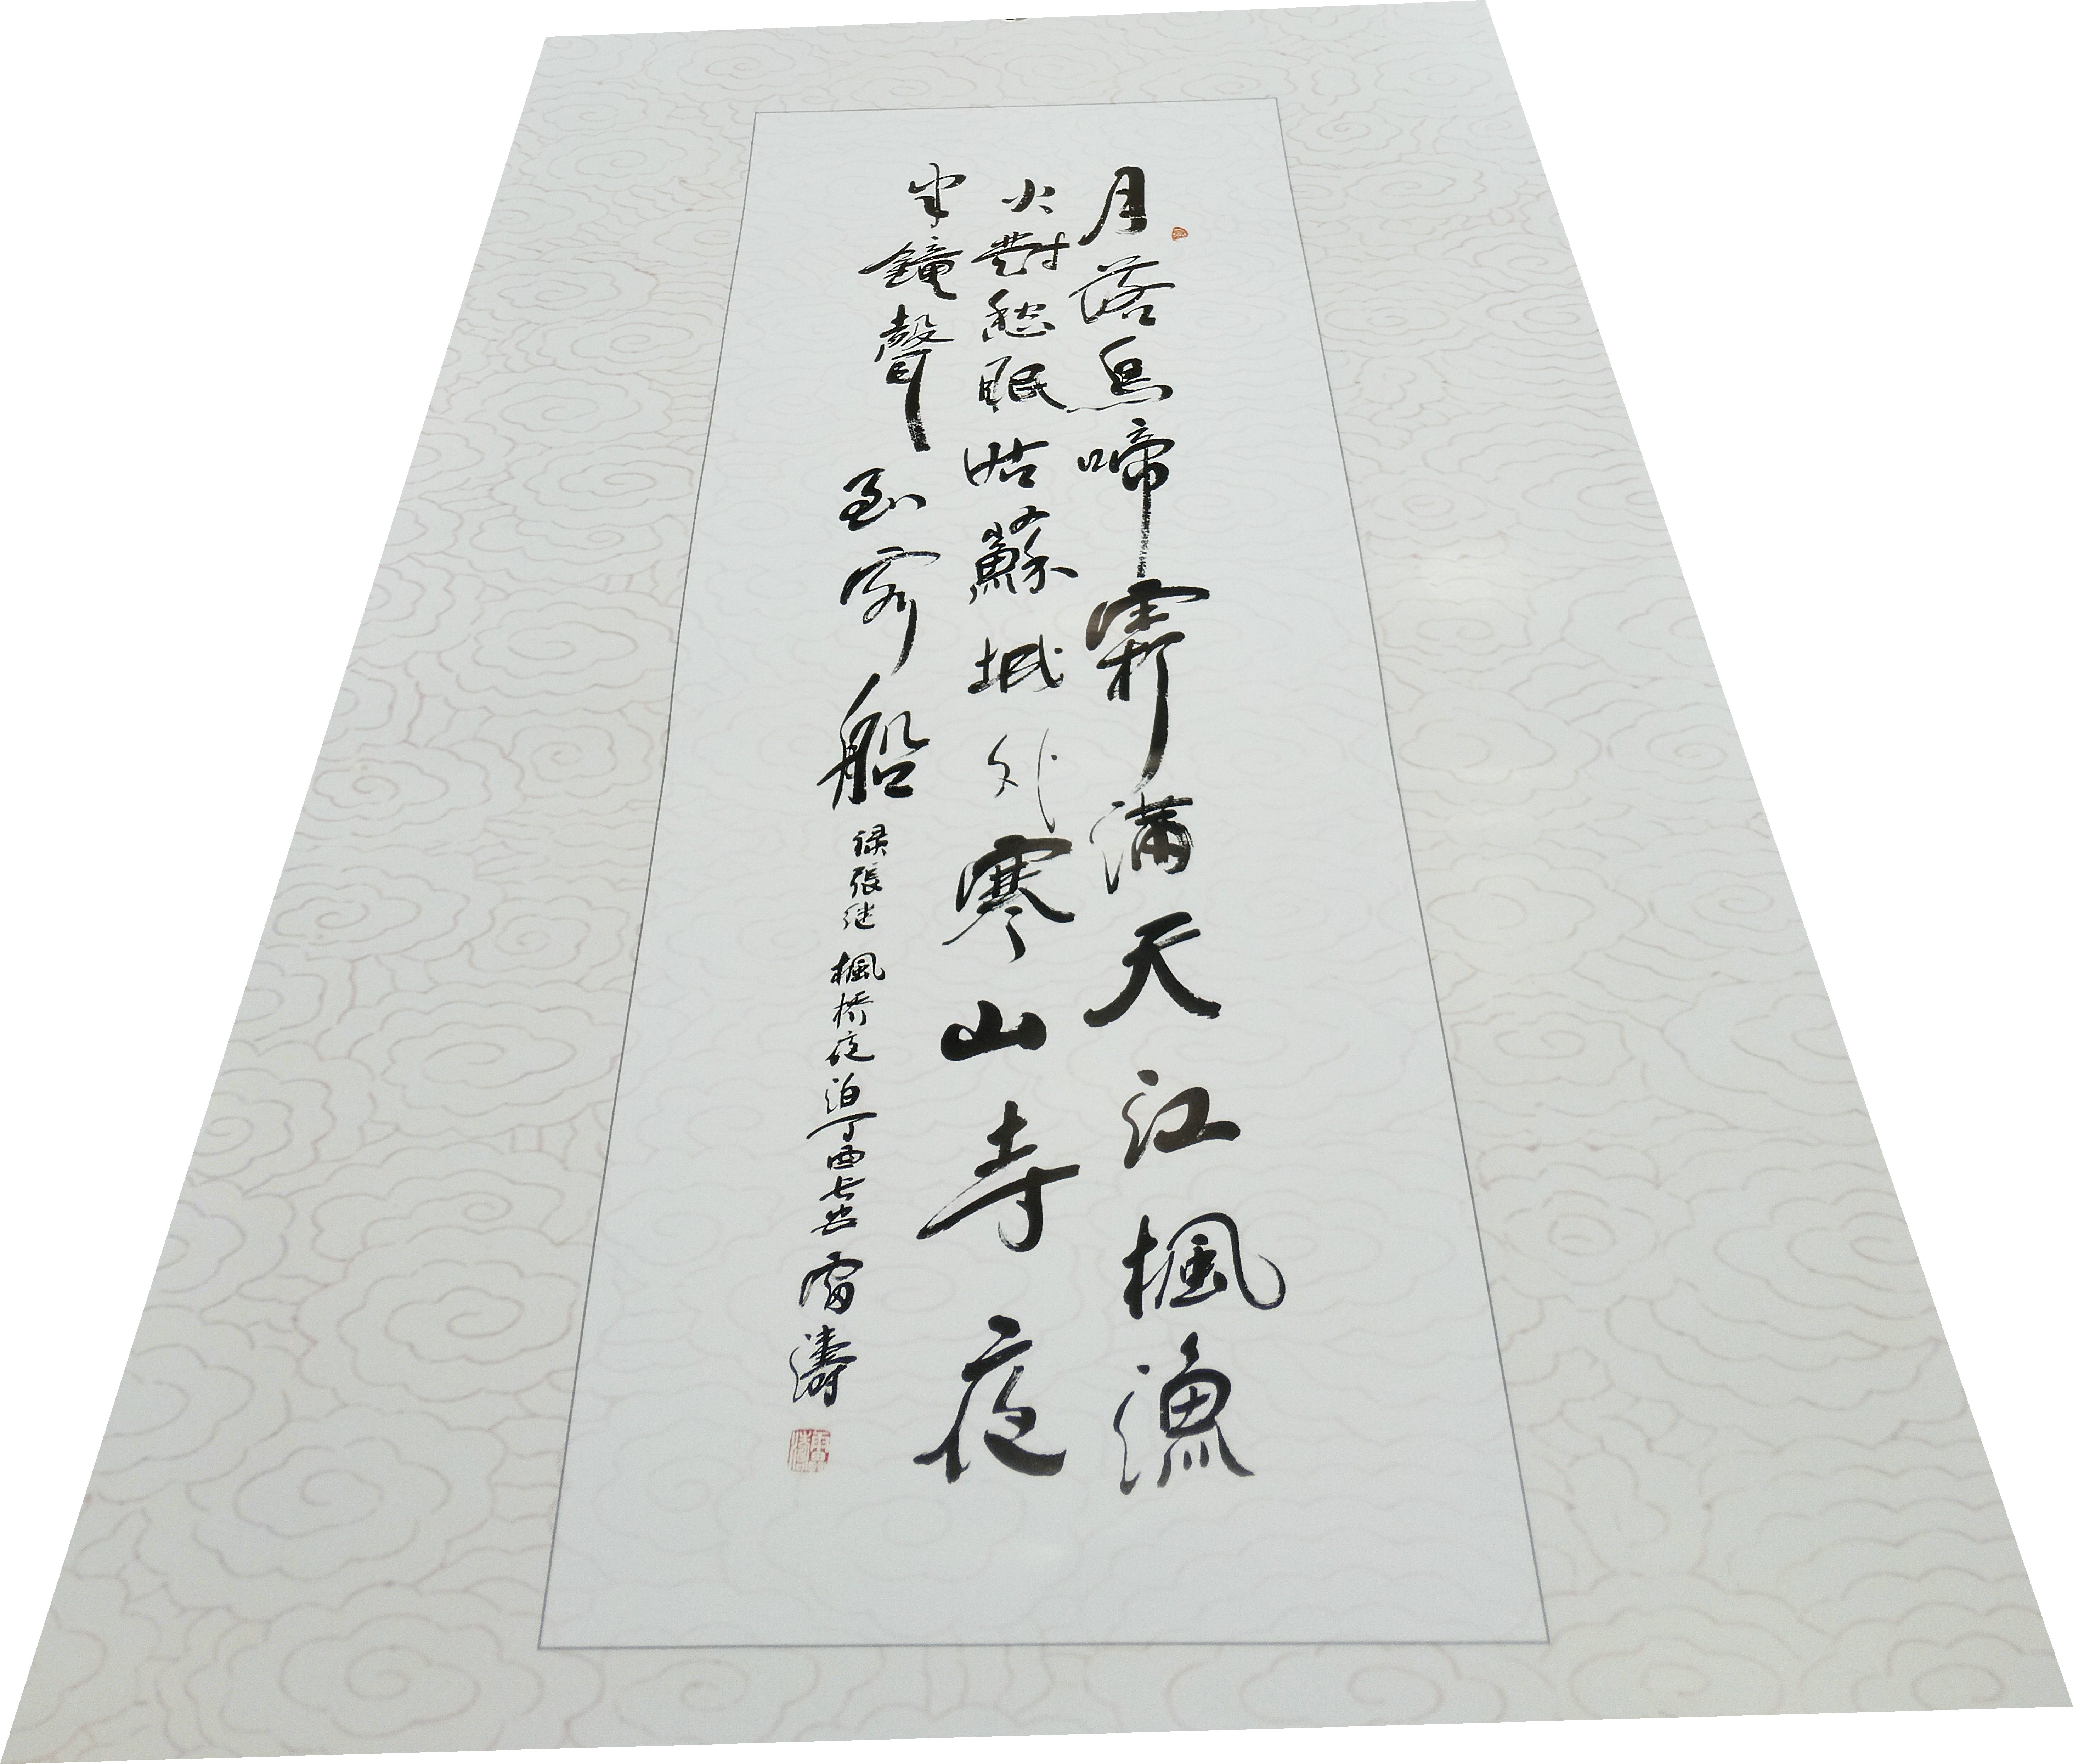 月落烏啼霜满天江楓漁
火對愁眠姑蘇城外寒山寺夜
半鐘聲到客船 録張继楓橋夜泊丁酉长安雷濤
雷濤